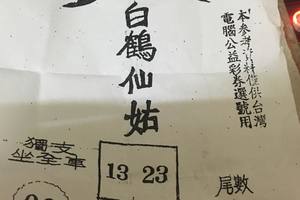 本參考資料僅供台灣
電腦公益彩券選號用
白鶴仙姑
獨支
坐全車
13 23
尾數